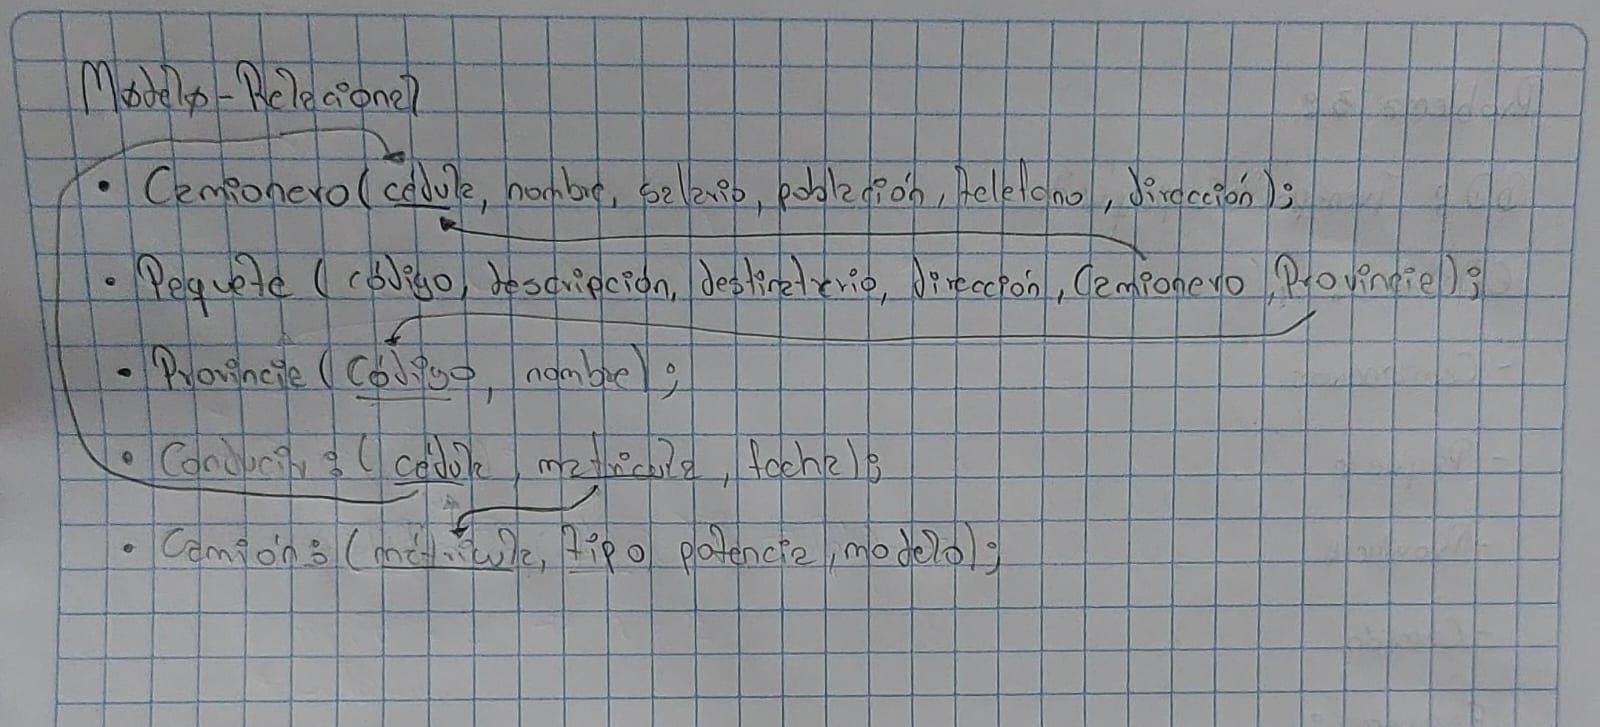 Modelo-Relacional
• Camionero (cédula, nombre, salario, población, telefono, dirección);
• Paquete (código, descripción, destinatario, dirección, Camionero, Provincia);
• Provincia (Código, nombre);
• Conducir: (cédula, matricula, fecha);
• Camión: (matricula, tipo potencia, modelo);